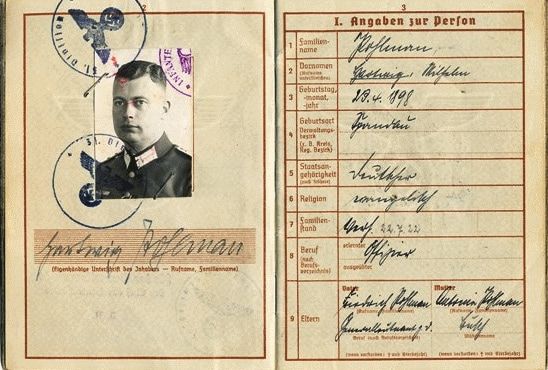 2
hartwig Pohlman
(Eigenhändige Unterschrift des Inhabers — Rufname, Familienname)
3
I. Angaben zur Person
1 Familienname Pohlman
2 Vornamen (Rufname unterstreichen) Hartwig, Wilhelm
3 Geburtstag, -monat, -jahr 23.4.1898
4 Geburtsort Verwaltungsbezirk (z. B. Kreis, Reg. Bezirk) Spandau
5 Staatsangehörigkeit (auch frühere) deutscher
6 Religion evangelisch
7 Familienstand verh. 22.7.22
8 Beruf (nach Berufsverzeichnis) erlernter Offizier
ausgeübter
9 Eltern
Vater Mutter
Friedrich Pohlman Antonie Pohlman
(Rufname, Familienname) (Rufname, Familienname)
Generalleutnant a. D. Busch
Beruf (nach Berufsverzeichnis) (Mädchenname)
(wenn verstorben: † und Sterbejahr) (wenn verstorben: † und Sterbejahr)